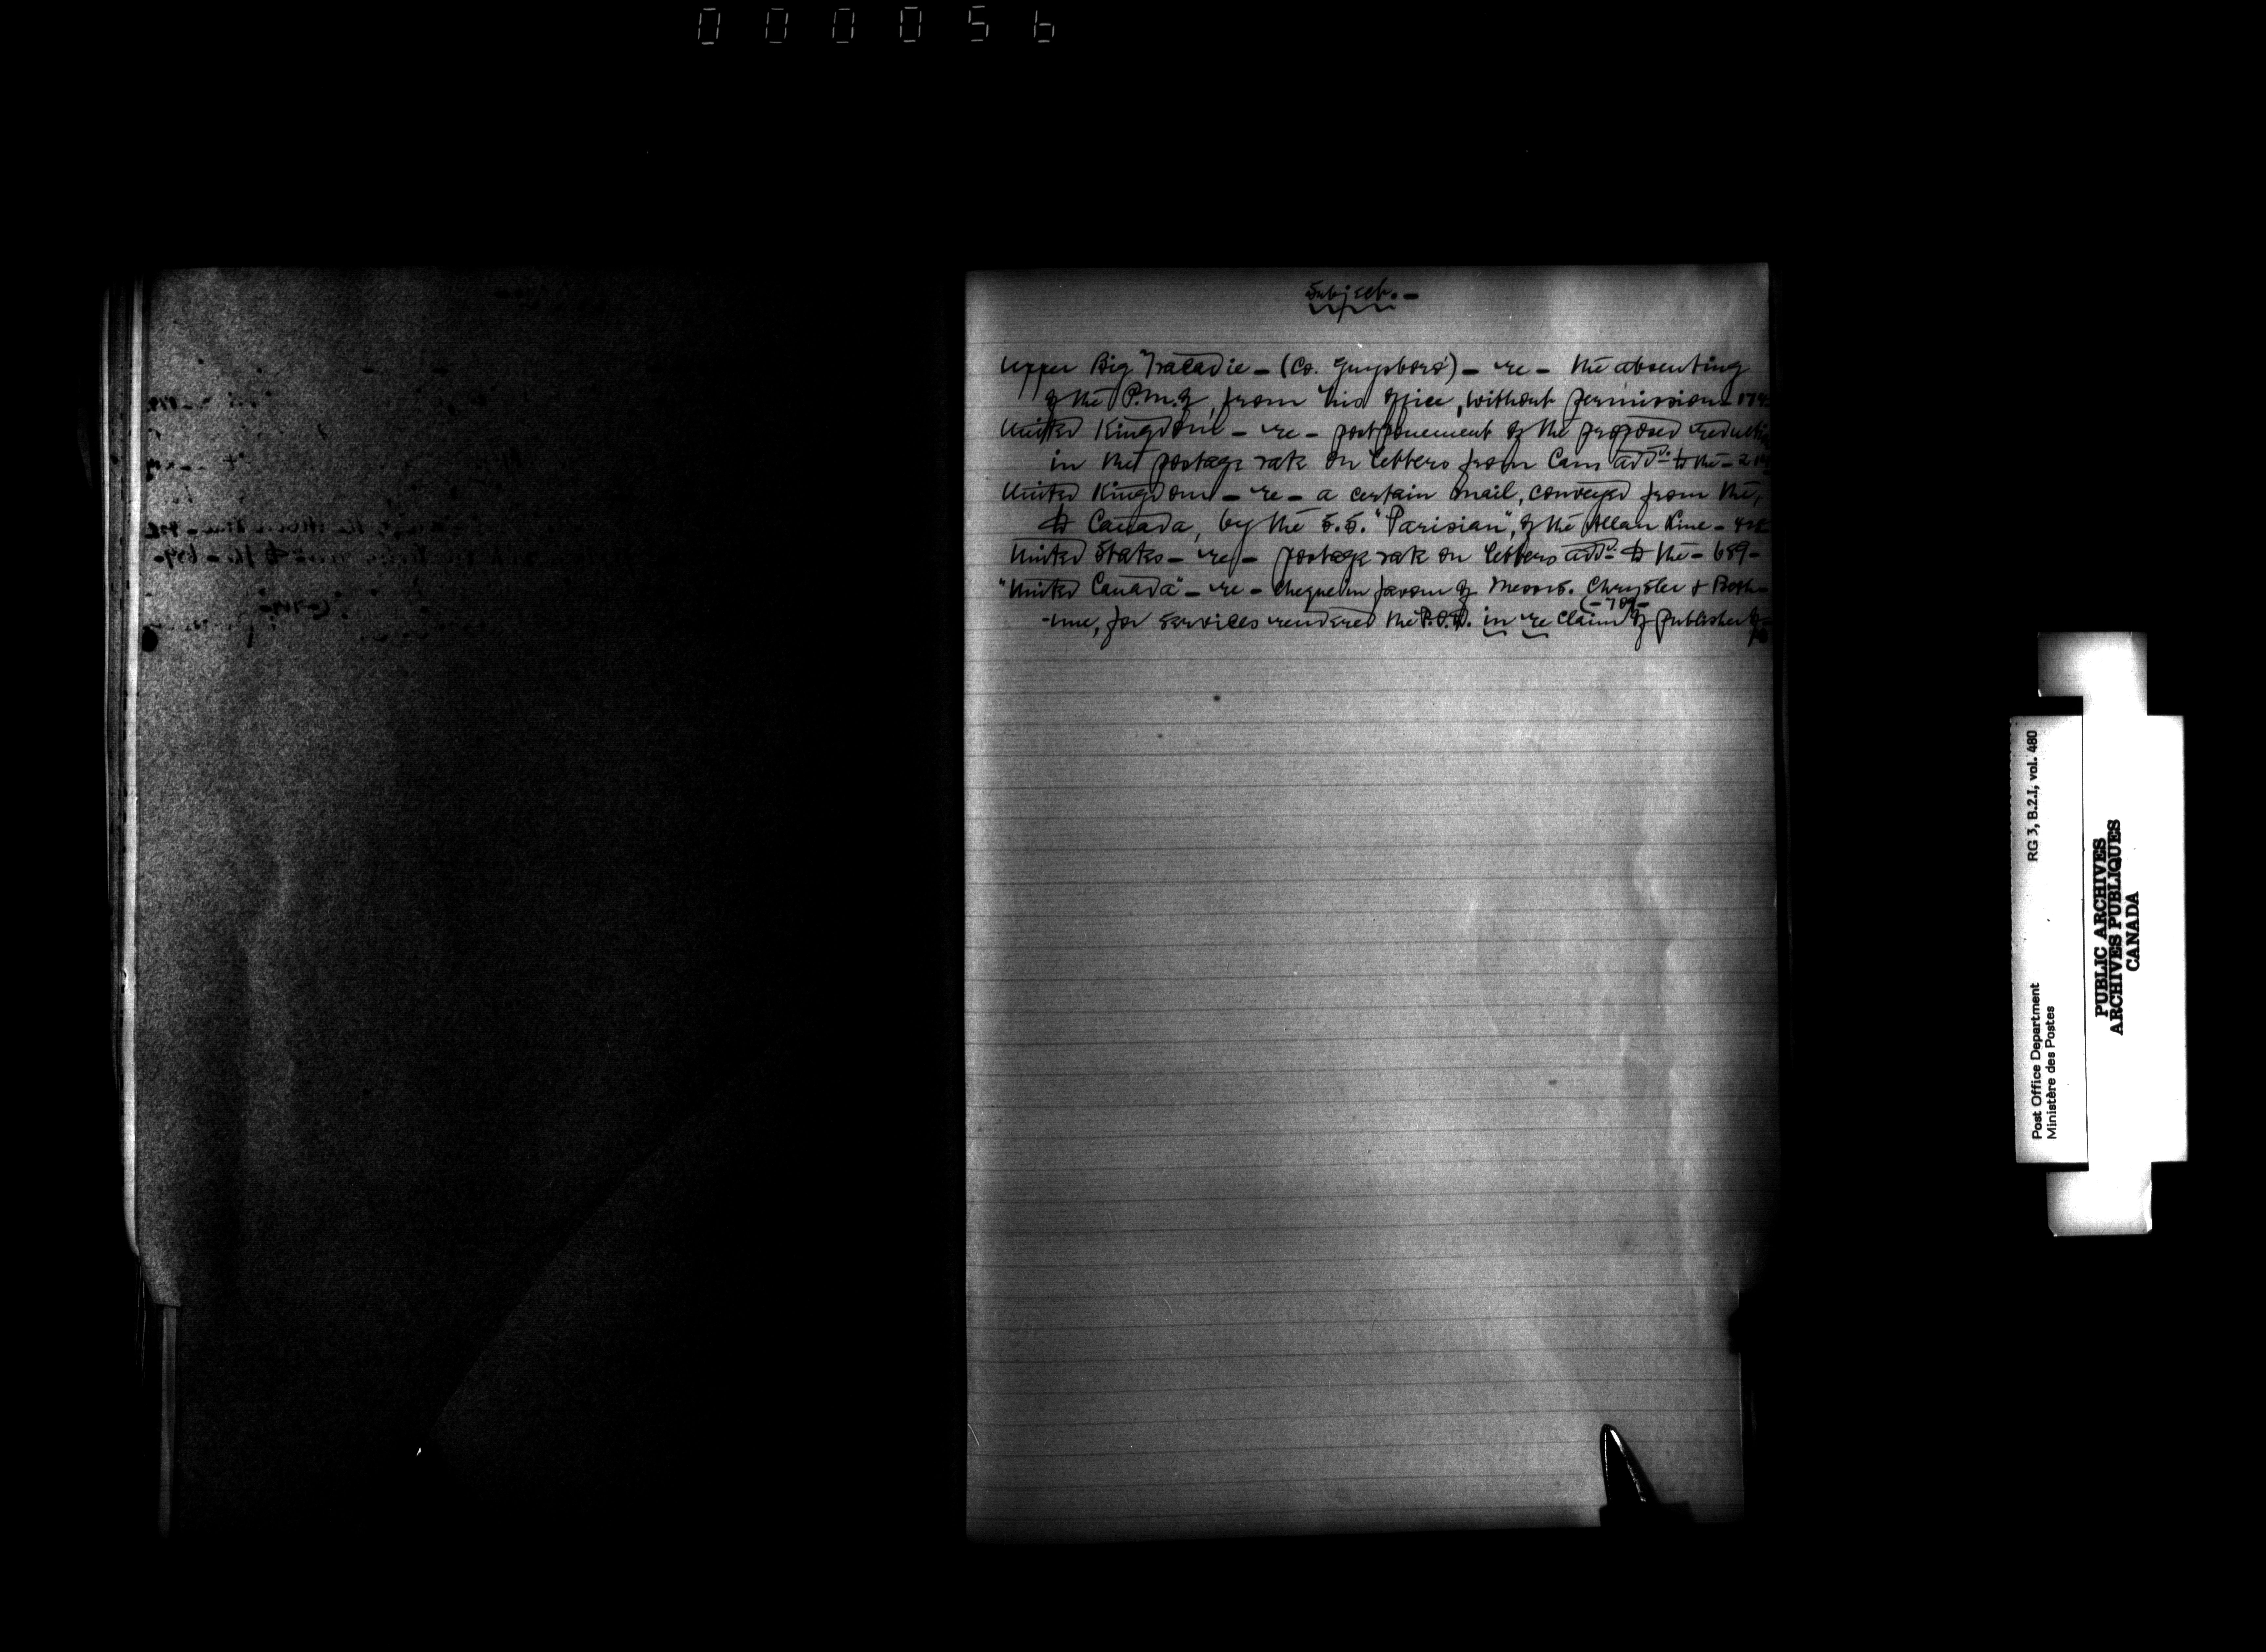 000056
Subject.-
Upper Big Tracadie - (Co. Guysboro') - re - the absenting
of the P.M. of, from his office, without permission - 179
United Kingdom - re - postponement of the proposed reducti
in the postage rate on letters from Can. add^d. to the - 2
United Kingdom - re - a certain mail, conveyed from the,
to Canada, by the S.S. "Parisian", of the Allan Line - 42
United States - re - postage rate on letters add^d. to the - 689 -
"United Canada" - re - cheque in favour of Messrs. Chrysler & Beth-
(- 709 -
-une, for services rendered the P.O.D. in re claim of publisher of
RG 3, B.2.I, vol. 480
Post Office Department
Ministère des Postes
PUBLIC ARCHIVES
ARCHIVES PUBLIQUES
CANADA